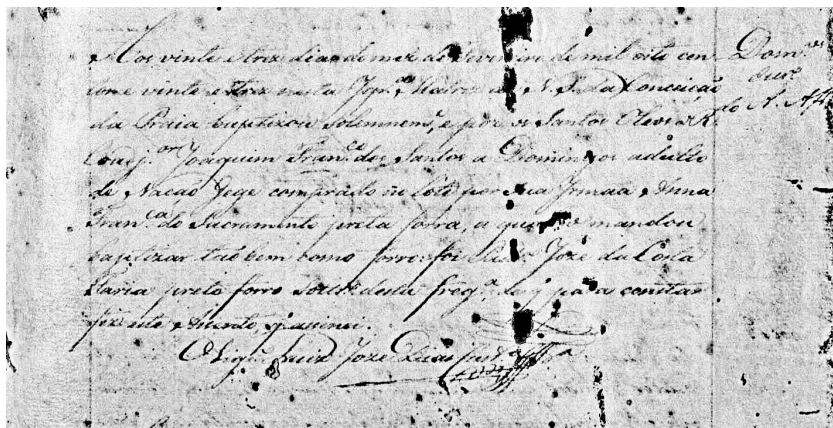 Aos vinte e trez dias do mez de Fevereiro de mil oito cen
tos e vinte e trez nesta Igr.ª Matriz de N. S. da Conceição
da Praia baptizou solemnem.e, e poz os Santos Oleos o R.
Coadj.or Joaquim Fran.co dos Santos a Domingos adulto
de Nação Gege comprado no Lote por sua Irmaã Anna
Fran.ca do Sacramento preta forra, a qual o mandou
baptizar taõ bem como forro: foi Padr.o Joze da Costa
Faria preto forro Solt.ro desta freg.ª, de q para constar
fiz este Assento, q assinei.
O Vigr.o Luiz Joze Dias
Dom.os
do A. Afr